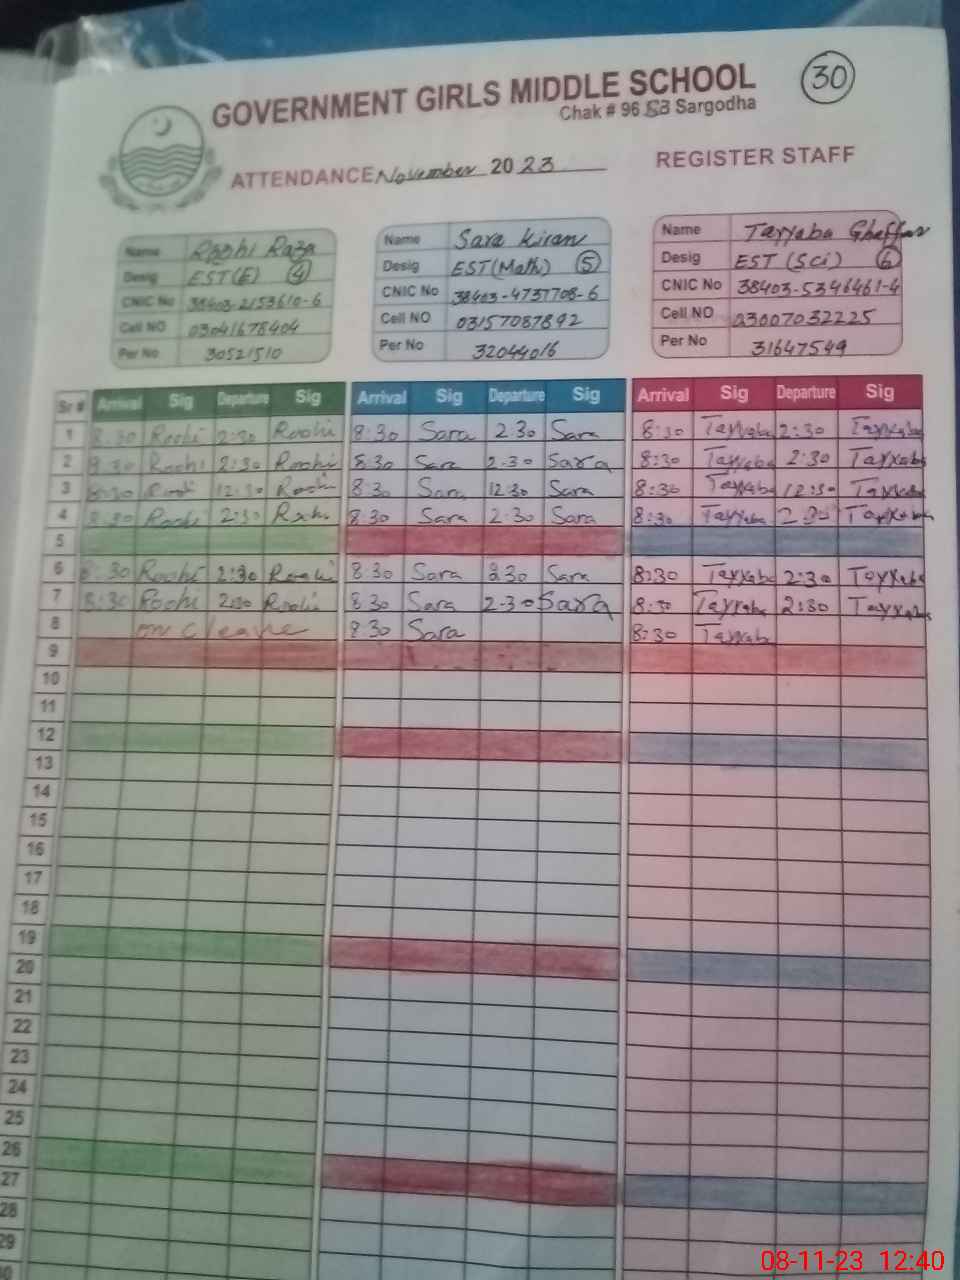 GOVERNMENT GIRLS MIDDLE SCHOOL 30
Chak # 96 SB Sargodha
ATTENDANCE November 2023 REGISTER STAFF
Name Roohi Raza Name Sara Kiran Name Tayyaba Ghaffar
Desig EST(E) 4 Desig EST(Math) 5 Desig EST (Sci) 6
CNIC No 38403-2153610-6 CNIC No 38403-4737708-6 CNIC No 38403-5346461-4
Cell NO 03041678404 Cell NO 03157087892 Cell NO 03007032225
Per No 30521510 Per No 32044016 Per No 31647549
Sr # Arrival Sig Departure Sig Arrival Sig Departure Sig Arrival Sig Departure Sig
1 8:30 Roohi 2:30 Roohi 8:30 Sara 2:30 Sara 8:30 Tayyaba 2:30 Tayyaba
2 8:30 Roohi 2:30 Roohi 8:30 Sara 2:30 Sara 8:30 Tayyaba 2:30 Tayyaba
3 8:30 Roohi 12:30 Roohi 8:30 Sara 12:30 Sara 8:30 Tayyaba 12:30 Tayyaba
4 8:30 Roohi 2:30 Rohi 8:30 Sara 2:30 Sara 8:30 Tayyaba 2:30 Tayyaba
5
6 8:30 Roohi 2:30 Roohi 8:30 Sara 2:30 Sara 8:30 Tayyaba 2:30 Tayyaba
7 8:30 Roohi 2:30 Roohi 8:30 Sara 2:30 Sara 8:30 Tayyaba 2:30 Tayyaba
8 on c leave 8:30 Sara 8:30 Tayyab
9
10
11
12
13
14
15
16
17
18
19
20
21
22
23
24
25
26
27
28
29
30
08-11-23 12:40